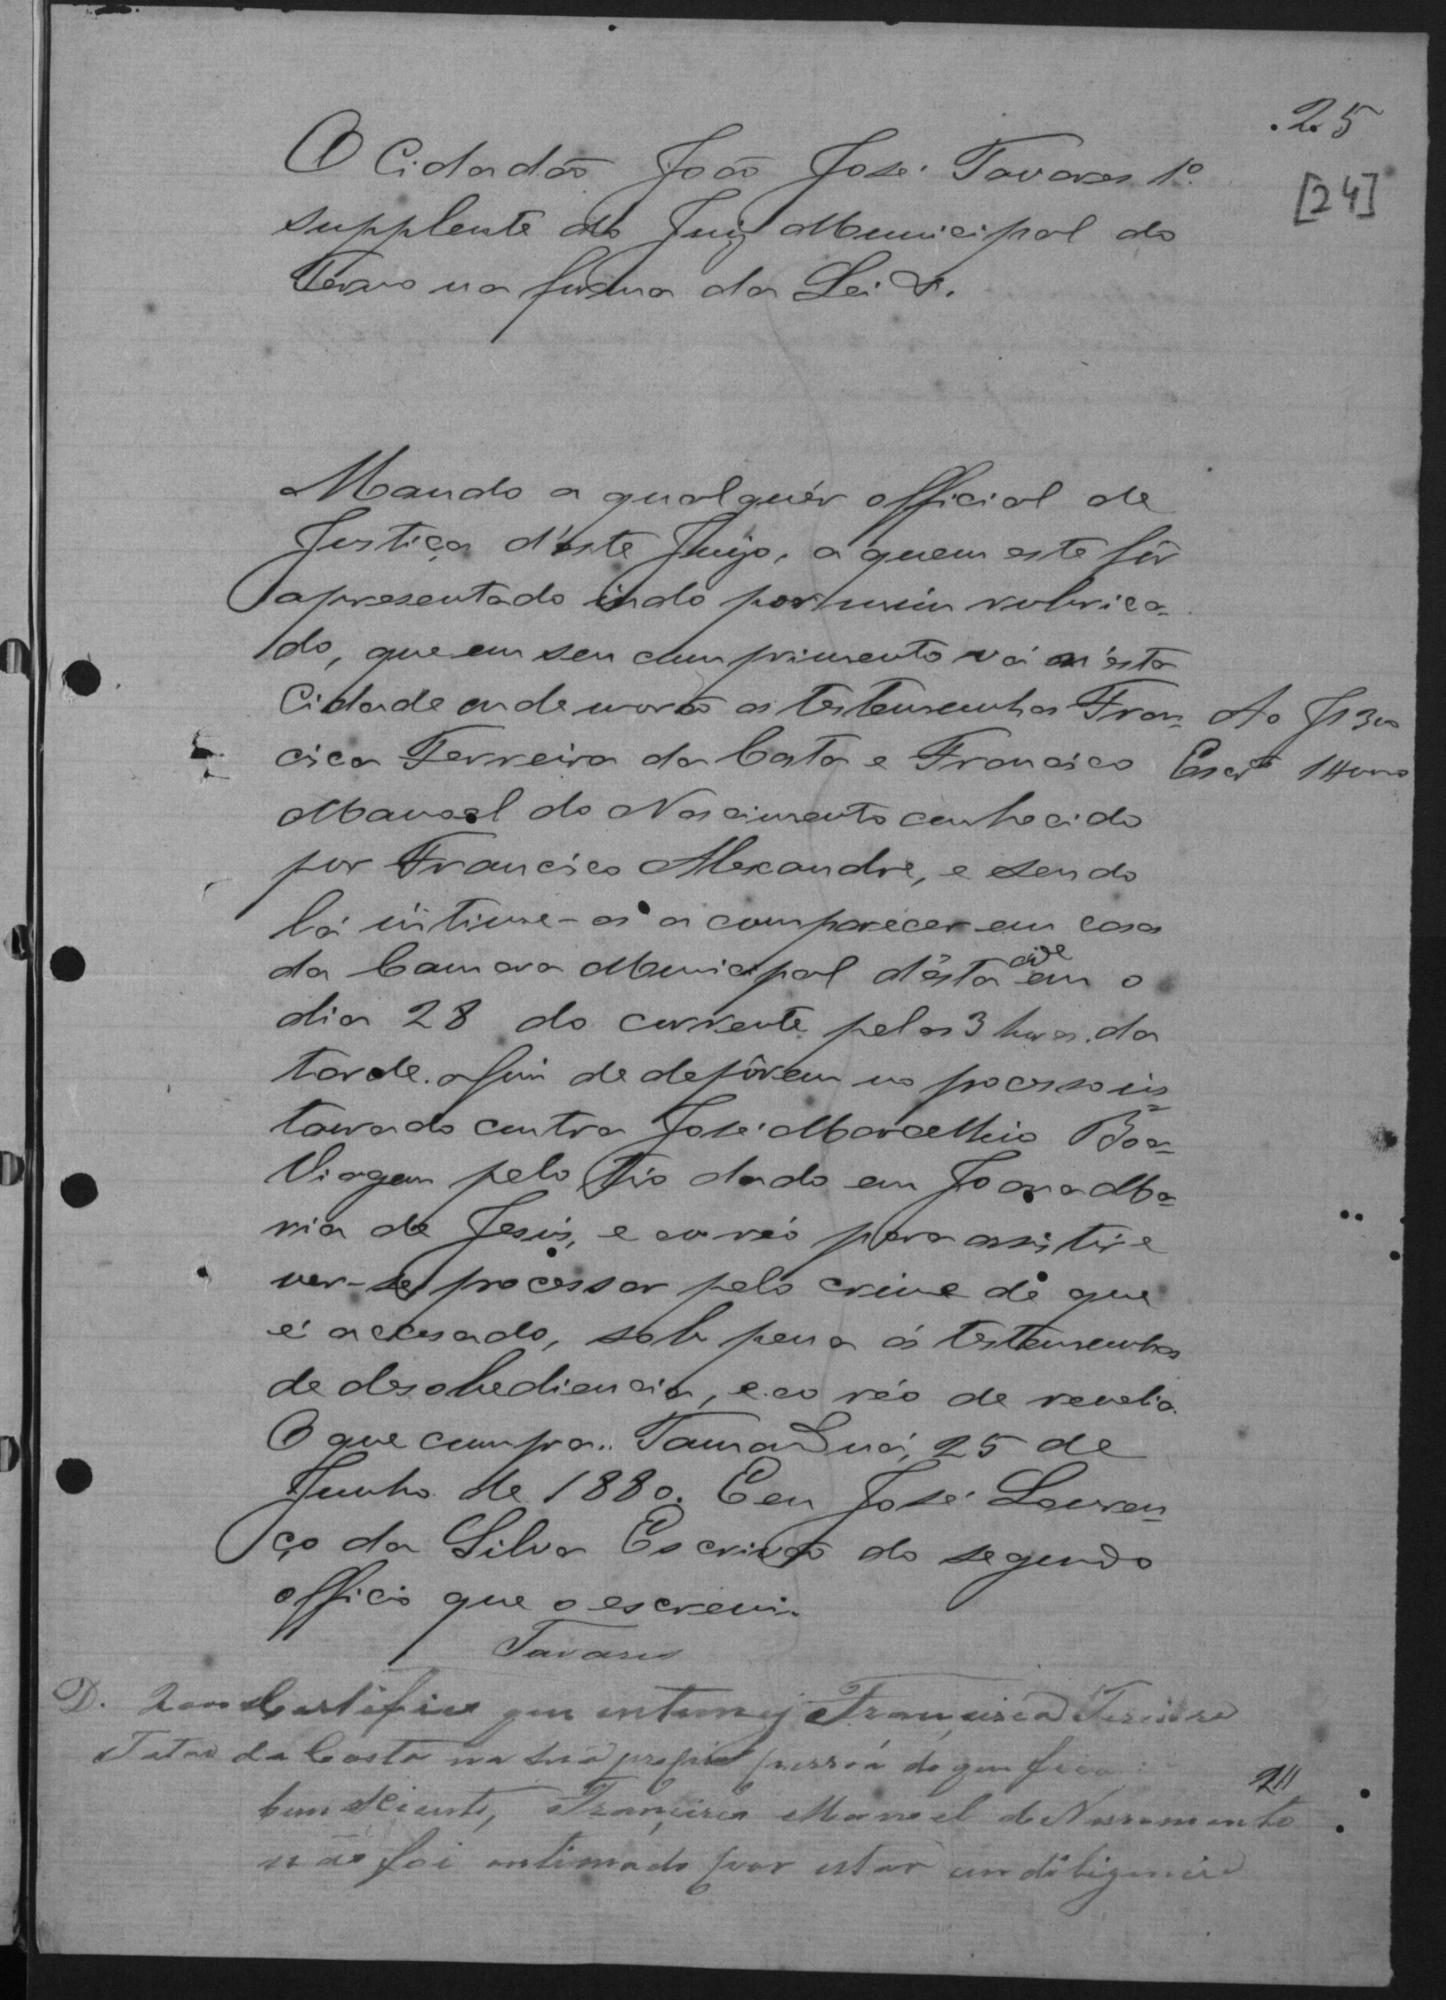 25
[24]
O Cidadão João José Tavares 1º
supplente do Juiz Municipal do
Termo na forma da Lei &.
Mando a qualquér official de
Justiça d'este Juizo, a quem este fôr
apresentado indo por mim rubrica-
do, que em seu cumprimento vá n'esta
Cidade onde morão as testemunhas Fran-
cisca Ferreira da Costa e Francisco
Manoel do Nascimento conhecido
por Francisco Alexandre, e sendo
lá intime-os a comparecer em casa
da Camara Municipal d'ésta cide em o
dia 28 do corrente pelas 3 horas da
tarde afim de depôrem no processo ins-
taurado contra José Marcellino Boa-
Viagem pelo tiro dado em Joana Ma-
ria de Jesús, e ao réo para assistir e
ver-se processar pelo crime de que
é accusado, sob pena ás testemunhas
de desobediencia, e ao réo de revelia.
O que cumpra. 25 de
Junho de 1880. E eu José Louren-
ço da Silva Escrivão do segundo
officio que o escrevi.
Tavares
Ao Js 300
Escrm
D. 2000 Certifico que intimey Francisca Fereira
da Costa na sua propia pessôa do que ficou
bem sciente, Francisco Manoel do Nascimento
não foi intimado por estar em diligencia